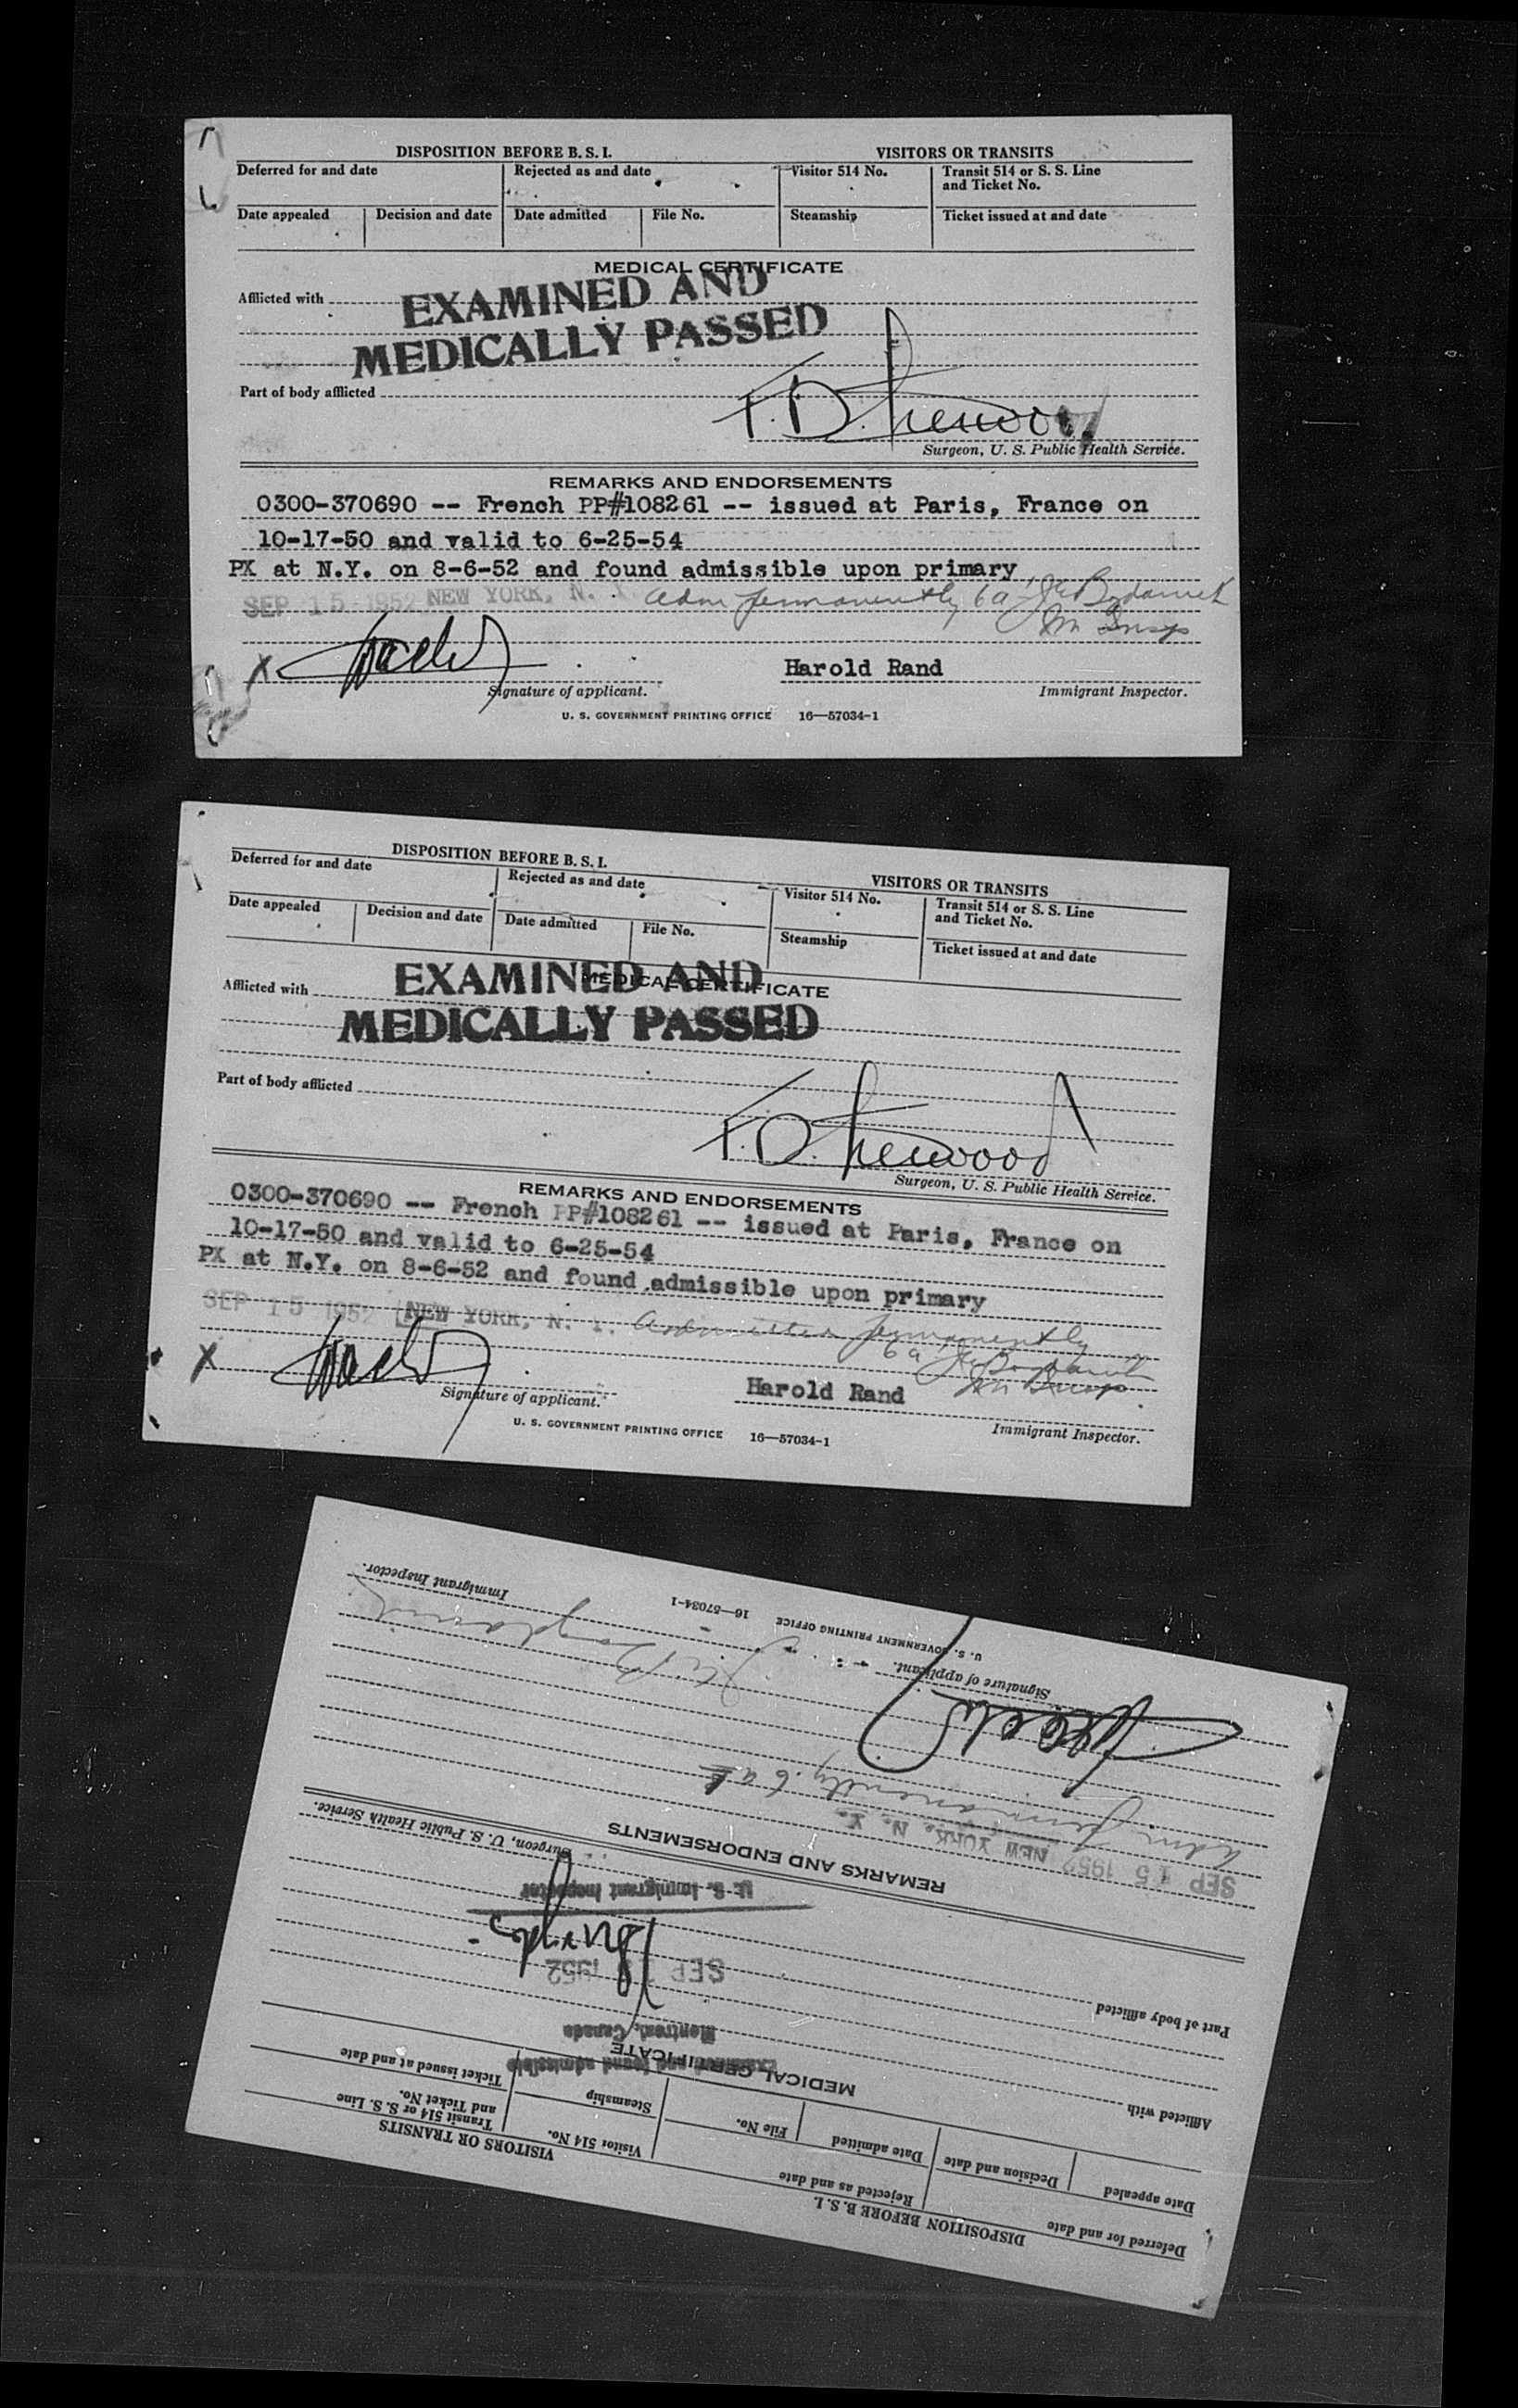 DISPOSITION BEFORE B. S. I. VISITORS OR TRANSITS
Deferred for and date Rejected as and date Visitor 514 No. Transit 514 or S. S. Line
and Ticket No.
Date appealed Decision and date Date admitted File No. Steamship Ticket issued at and date
MEDICAL CERTIFICATE
Afflicted with
EXAMINED AND
MEDICALLY PASSED
Part of body afflicted
Surgeon, U. S. Public Health Service.
REMARKS AND ENDORSEMENTS
0300-370690 -- French PP#108261 -- issued at Paris, France on
10-17-50 and valid to 6-25-54
PX at N.Y. on 8-6-52 and found admissible upon primary
SEP 15 1952 NEW YORK, N. Y. adm permanently 6a
Im Insp
X
Harold Rand
Signature of applicant. Immigrant Inspector.
U. S. GOVERNMENT PRINTING OFFICE 16—57034-1
DISPOSITION BEFORE B. S. I. VISITORS OR TRANSITS
Deferred for and date Rejected as and date Visitor 514 No. Transit 514 or S. S. Line
and Ticket No.
Date appealed Decision and date Date admitted File No. Steamship Ticket issued at and date
MEDICAL CERTIFICATE
Afflicted with
EXAMINED AND
MEDICALLY PASSED
Part of body afflicted
Surgeon, U. S. Public Health Service.
REMARKS AND ENDORSEMENTS
0300-370690 -- French PP#108261 -- issued at Paris, France on
10-17-50 and valid to 6-25-54
PX at N.Y. on 8-6-52 and found admissible upon primary
SEP 15 1952 NEW YORK, N. Y. admitted permanently
6a
Im Insp
X
Harold Rand
Signature of applicant. Immigrant Inspector.
U. S. GOVERNMENT PRINTING OFFICE 16—57034-1
DISPOSITION BEFORE B. S. I. VISITORS OR TRANSITS
Deferred for and date Rejected as and date Visitor 514 No. Transit 514 or S. S. Line
and Ticket No.
Date appealed Decision and date Date admitted File No. Steamship Ticket issued at and date
MEDICAL CERTIFICATE
Examined and found admissible
Afflicted with
Montreal, Canada
SEP 1952
Part of body afflicted
U. S. Immigrant Inspector
Surgeon, U. S. Public Health Service.
REMARKS AND ENDORSEMENTS
SEP 15 1952 NEW YORK, N. Y.
adm permanently 6a
Signature of applicant. Immigrant Inspector.
U. S. GOVERNMENT PRINTING OFFICE 16—57034-1